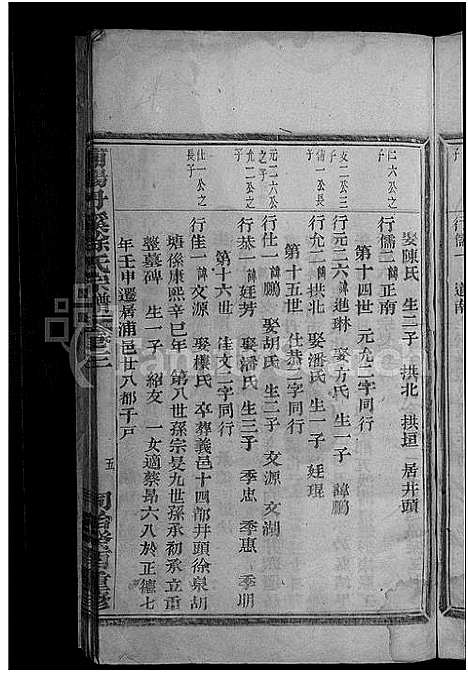 二六公之子
行儒二諱正南
娶陳氏 生二子 拱北 拱垣 居井頭
第十四世 元允二字同行
文二公三子
行元二六諱進琳 娶方氏 生一子 諱鵬
儒一公長子
行允二諱拱北 娶潘氏 生一子 廷琨
第十五世 仕恭二字同行
元二六公之子
行仕一諱鵬 娶胡氏 生二子 文源 文湖
允二公之子
行恭一諱廷芳 娶潘氏 生三子 季忠 季惠 季明
第十六世 佳文二字同行
仕一公之長子
行佳一諱文源 娶樓氏 卒葬義邑十四都井頭徐泉胡
塘後康熙辛巳年 第八世孫宗旻九世孫承初承立重
整墓碑 生一子 紹友 一女適蔡昴六八於正德七
年壬申遷居浦邑廿八都千戶
浦陽丹溪徐氏宗譜 卷之二
五
同治癸酉重修
FamilySearch